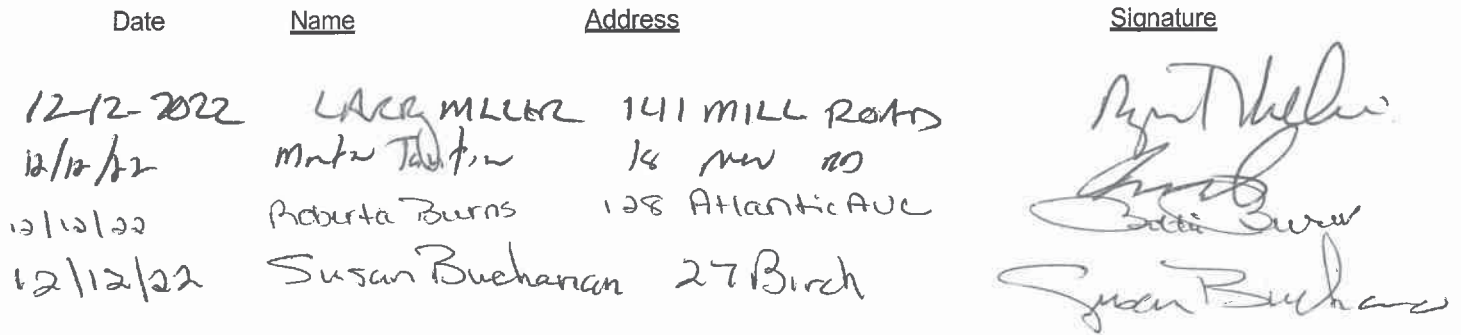 Date Name Address Signature
12-12-2022 LARRY MLLER 141 MILL ROAD
12/12/22 18
12/12/22 Roberta Burns 128 Atlantic Ave
12/12/22 Susan Buchanan 27 Birch Susan Buchanan